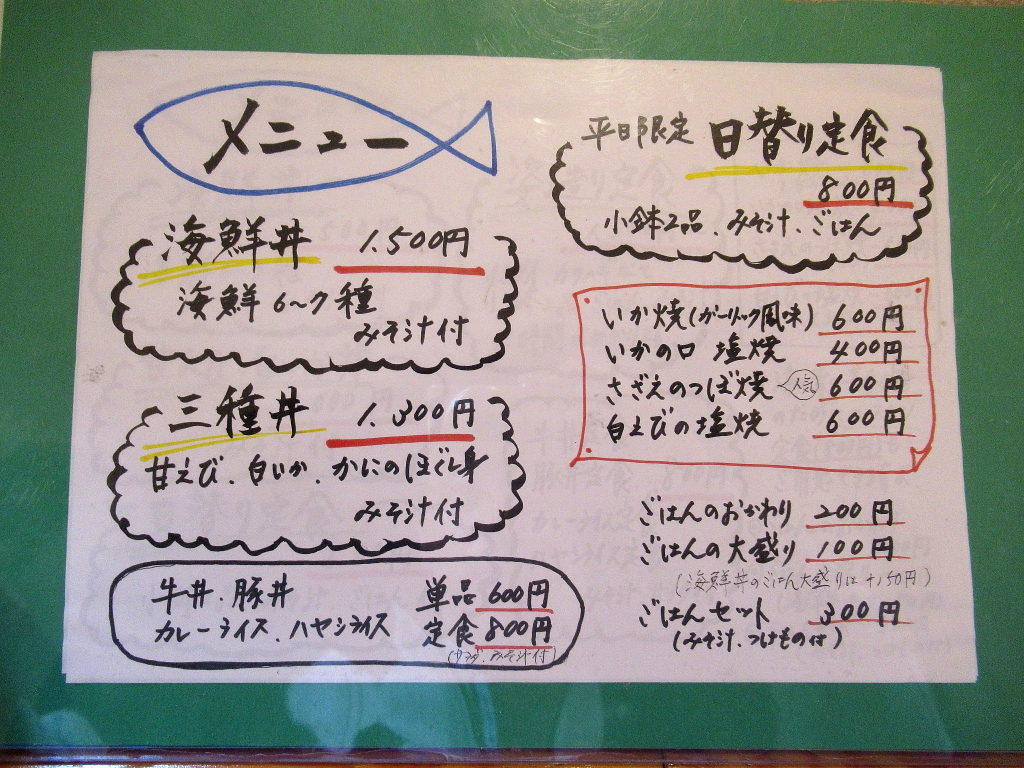 メニュー
海鮮丼 1.500円
海鮮6〜7種
みそ汁付
三種丼 1.300円
甘えび、白いか、かにのほぐし身
みそ汁付
牛丼、豚丼 単品 600円
カレーライス、ハヤシライス 定食 800円
(サラダ、みそ汁付)
平日限定 日替り定食
800円
小鉢2品、みそ汁、ごはん
いか焼(ガーリック風味) 600円
いかの口 塩焼 400円
さざえのつぼ焼 人気 600円
白えびの塩焼 600円
ごはんのおかわり 200円
ごはんの大盛り 100円
(海鮮丼のごはん大盛りは+150円)
ごはんセット 300円
(みそ汁、つけもの付)